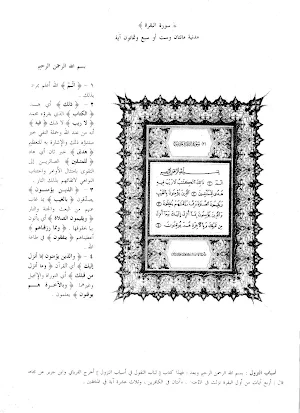 ﴿ سورة البقرة ﴾
مدنية مائتان وست أو سبع وثمانون آية
بسم الله الرحمن الرحيم
١ - ﴿ الٓمٓ ﴾ الله أعلم بمراده
بذلك .
٢ - ﴿ ذلك ﴾ أي هذا
﴿ الكتاب ﴾ الذي يقرؤه محمد
﴿ لا ريب ﴾ لا شك ﴿ فيه ﴾
أنه من عند الله وجملة النفي خبر
مبتدؤه ذلك والإشارة به للتعظيم
﴿ هدى ﴾ خبر ثان أي هاد
﴿ للمتقين ﴾ الصائرين إلى
التقوى بامتثال الأوامر واجتناب
النواهي لاتقائهم بذلك النار .
٣ - ﴿ الذين يؤمنون ﴾
يصدقون ﴿ بالغيب ﴾ بما غاب
عنهم من البعث والجنة والنار
﴿ ويقيمون الصلاة ﴾ أي يأتون
بها بحقوقها . ﴿ ومما رزقناهم ﴾
أعطيناهم ﴿ ينفقون ﴾ في طاعة
الله .
٤ - ﴿ والذين يؤمنون بما أنزل
إليك ﴾ أي القرآن ﴿ وما أنزل
من قبلك ﴾ أي التوراة والإنجيل
وغيرهما ﴿ وبالآخرة هم
يوقنون ﴾ يعلمون .
بسم الله الرحمن الرحيم
أسباب النزول : بسم الله الرحمن الرحيم وبعد ، فهذا كتاب ( لباب النقول في أسباب النزول ) أخرج الفريابي وابن جرير عن مجاهد
قال : أربع آيات من أول البقرة نزلت في